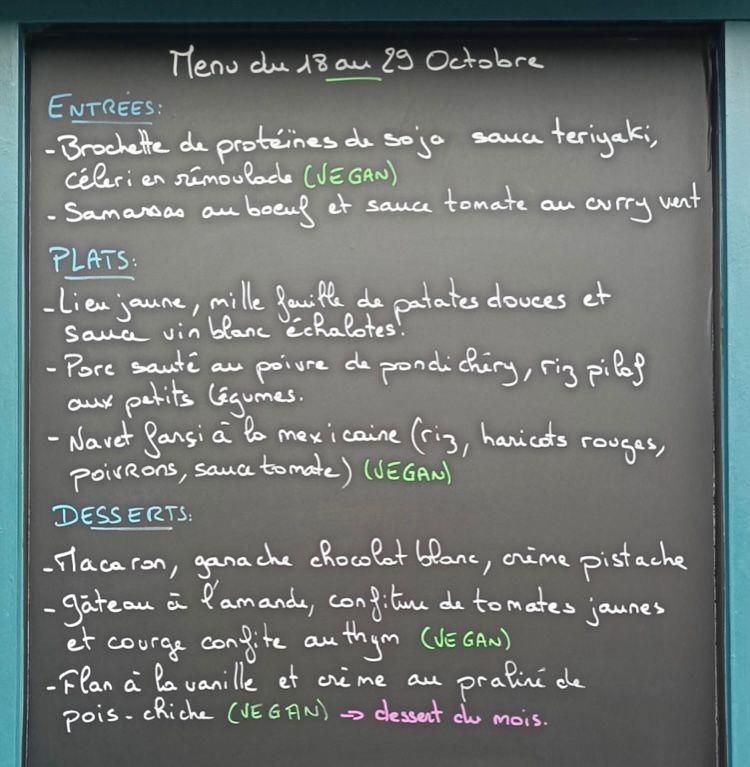 Menu du 18 au 29 Octobre
ENTRÉES:
- Brochette de protéïnes de soja sauce teriyaki,
céleri en rémoulade (VEGAN)
- Samossas au boeuf et sauce tomate au curry vert
PLATS:
- Lieu jaune, mille feuille de patates douces et
sauce vin blanc échalotes.
- Porc sauté au poivre de pondichéry, riz pilaf
aux petits légumes.
- Navet farçi à la mexicaine (riz, haricots rouges,
poivrons, sauce tomate) (VEGAN)
DESSERTS:
- Macaron, ganache chocolat blanc, crème pistache
- gâteau à l'amande, confiture de tomates jaunes
et courge confite au thym (VEGAN)
- Flan à la vanille et crème au praliné de
pois-chiche (VEGAN) → dessert du mois.